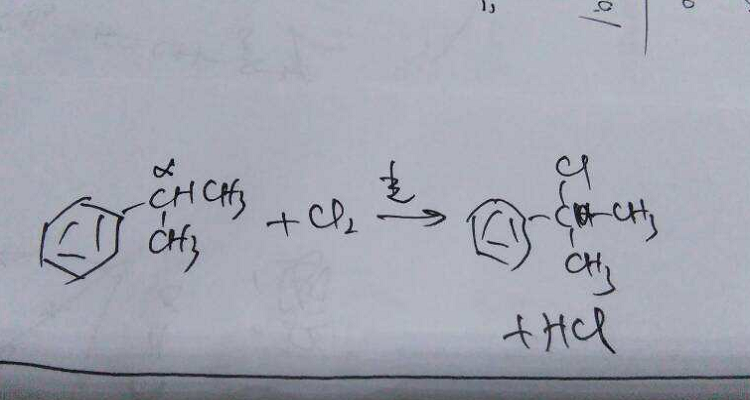 α
CHCH3
CH3
+ Cl2
Cl
C-CH3
CH3
+ HCl